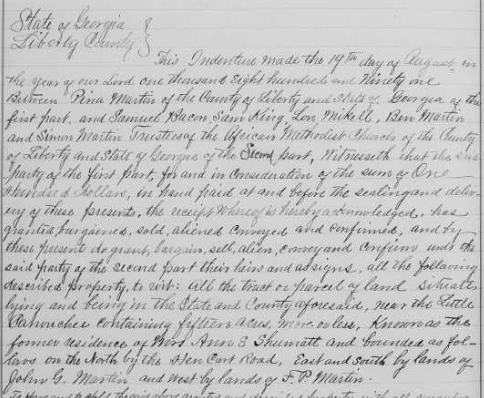 State of Georgia
Liberty County
This Indenture made the 19th day of August in
the year of our Lord one thousand Eight hundred and Ninety one
Between Pina Martin of the County of Liberty and State of Georgia of the
first part, and Samuel Bacon, Sam King, Lon Mikell, Ben Martin
and Simon Martin Trustees of the African Methodist Church of the County
of Liberty and State of Georgia of the Second part, Witnesseth that the said
party of the first part, for and in consideration of the sum of One
Hundred Dollars, in hand paid at and before the sealing and deliv-
ery of these presents, the receipt whereof is hereby acknowledged, has
granted, bargained, sold, aliened conveyed and confirmed, and by
these present do grant, bargain, sell, alien, convey and confirm unto the
said party of the second part their heirs and assigns, all the following
described property, to wit: all the tract or parcel of land situate,
lying and being in the State and County aforesaid, near the Little
Canouchee containing fifteen acres, more or less, Known as the
former residence of Mrs Ann E and bounded as fol-
lows on the North by the Hen Cart Road, East and South by lands of
John G. Martin, and West by lands of F. P. Martin.